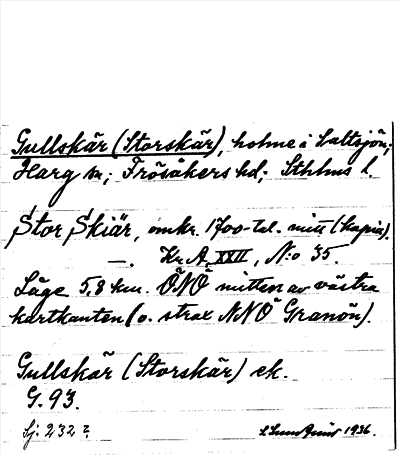 Gullskär (Storskär), holme i Saltsjön;
Harg sn; Frösåkers hd; Sthlms l.
Stor Skiär, omkr. 1700-tal. mitt (kopia).
—. Kr. A. XXII, N:o 35.
Läge 5,8 km. ÖNÖ mitten av västra
kartkanten (o. strax NNÖ Granön).
Gullskär (Storskär) ek.
G. 93.
Sj. 232?
1936.